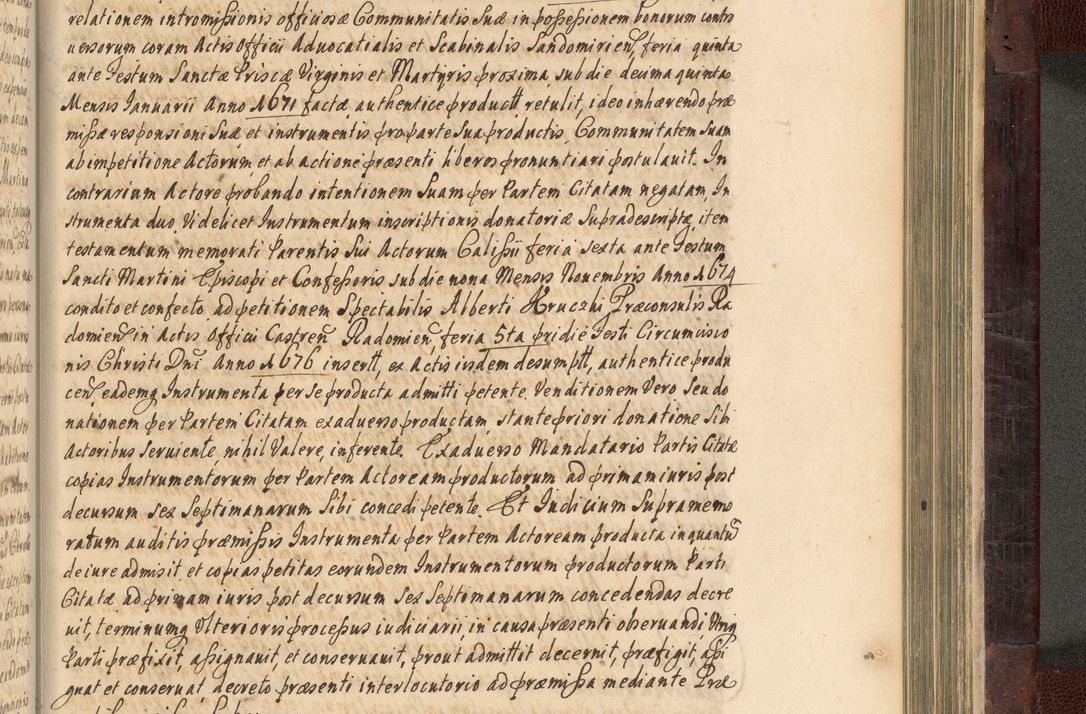 relationem intromissionis officiosæ Communitatis Suæ in possessionem bonorum contro
uersorum coram Actis Officii Aduocatialis et Scabinalis Sandomirien, feria quinta
ante Festum Sanctæ Priscæ Virginis et Martyris proxima, sub die decima quinta
Mensis Ianuarii Anno 1671 factæ, authentice product retulit, ideo inhærendo præ
missæ responsioni Suæ et instrumentis pro parte Sua productis, Communitatem Suam
ab impetitione Actorum et ab actione præsenti liberos pronuntiari postulauit. In
contrarium Actore probando intentionem Suam per Partem Citatam negatam, In
strumenta duo, Videlicet Instrumentum inscriptionis donatoriæ Supradescriptæ, item
testamentum memorati Parentis Sui Actorum Calissii feria sexta ante Festum
Sancti Martini Episcopi et Confessoris sub die nona Mensis Nouembris Anno 1674
condito et confecto, ad petitionem Spectabilis Alberti Kruczki Præconsulis Ra
domien in Actis Officii Castren Radomien, feria 5ta pridie Festi Circumcisio
nis Christi Dni Anno 1676 insert, ex Actis iisdem desumptt, authentice produ
cen, eademq Instrumenta per se producta admitti petente. Venditionem Vero Seu do
nationem per Partem Citatam exaduerso productam, stante priori donatione Sibi
Actoribus Seruiente, nihil Valere, inferente. Exaduerso Mandatario Partis Citatæ
copias Instrumentorum per Partem Actoream productorum ad primam iuris post
decursum sex Septimanarum Sibi concedi petente. Et Iudicium Supramemo
ratum auditis præmissis Instrumenta per Partem Actoream producta in quantu
de iure admisit, et copias petitas eorundem Instrumentorum productorum Parti
Citatæ, ad primam iuris post decursum sex Septimanarum concedendas decre
uit, terminumq Vlterioris processus iudiciarii, in causa præsenti obseruandi Vtriq
Parti præfixit, assignauit, et conseruauit, prout admittit decernit, præfigit, assi
gnat et conseruat, decreto præsenti interlocutorio ad præmissa mediante Præ